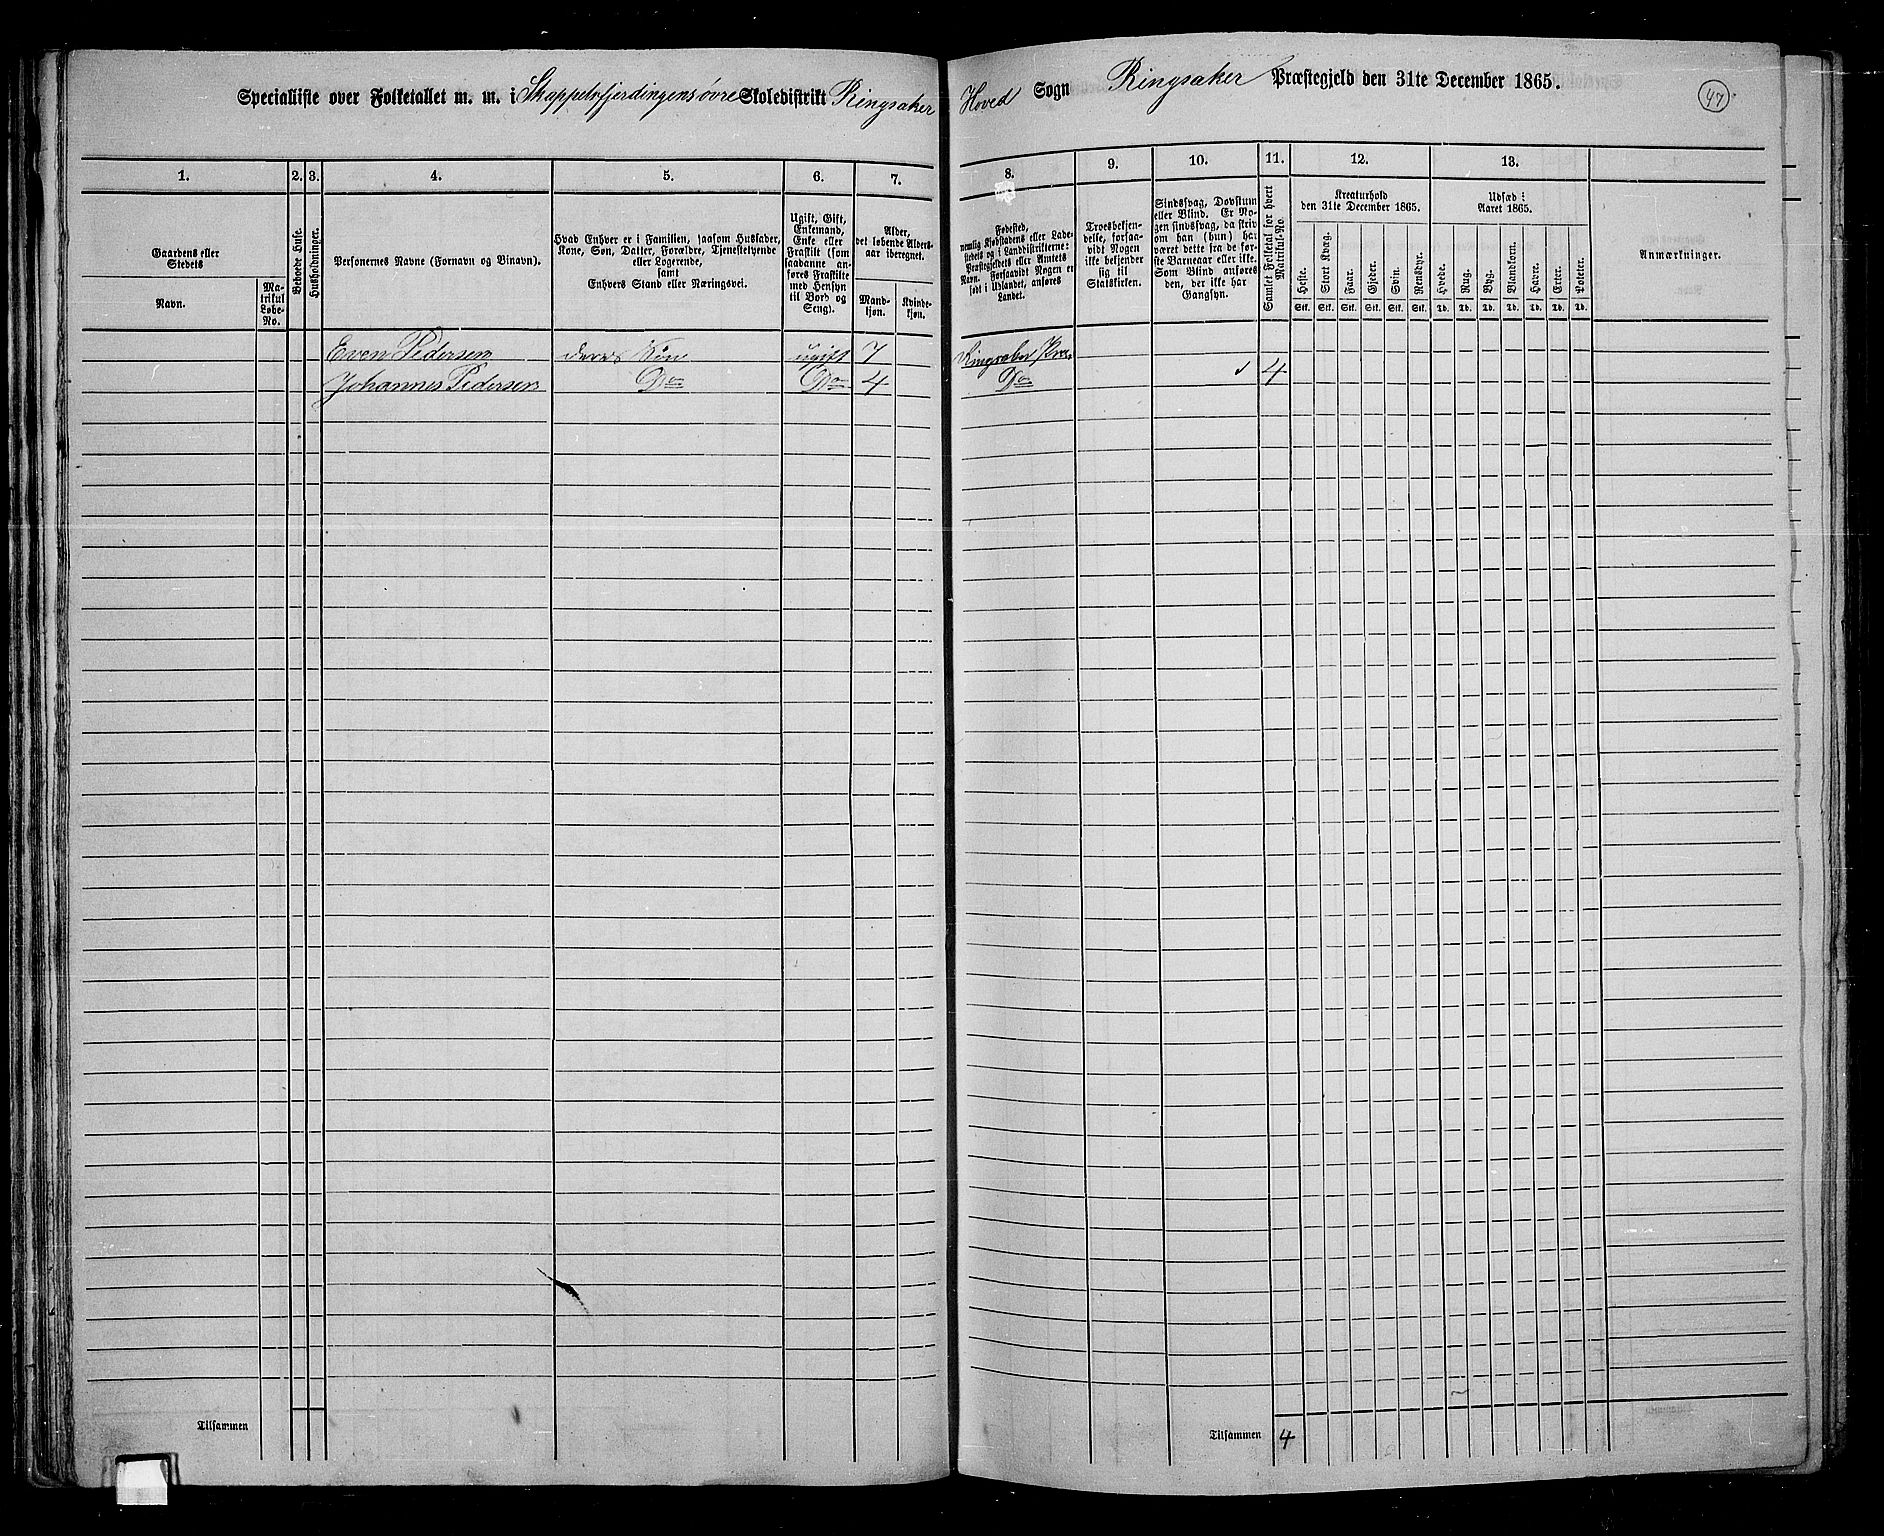 Specialliste over Folketallet m. m. i Skappelsfjerdingens øvre Skoledistrikt Ringsaker Hoved Sogn Ringsaker Præstegjeld den 31te December 1865.
47
1. 2. 3. 4. 5. 6. 7. 8. 9. 10. 11. 12. 13.
Gaardens eller
Stedets
Navn.
Ma-
trikul
Løbe-
No.
Beboede Huse.
Husholdninger.
Personernes Navne (Fornavn og Binavn).
Hvad Enhver er i Familien, saasom Husfader,
Kone, Søn, Datter, Forældre, Tjenestetyende
eller Logerende,
samt
Enhvers Stand eller Næringsvei.
Ugift, Gift,
Enkemand,
Enke eller
Fraskilt (som
saadanne an-
føres Fraskilte
med Hensyn
til Bord og
Seng).
Alder,
det løbende Alders-
aar iberegnet.
Mand-
kjøn.
Kvinde-
kjøn.
Fødested,
nemlig Kjøbstadens eller Lade-
stedets og i Landdistrikterne:
Præstegjeldets eller Amtets
Navn. Forsaavidt Nogen er
født i Udlandet, anføres
Landet.
Troesbekjen-
delse, forsaa-
vidt Nogen
ikke bekjender
sig til
Statskirken.
Sindssvag, Døvstum
eller Blind. Er No-
gen sindssvag, da skriv
om han (hun) har
været dette fra de før-
ste Barneaar eller ikke.
Som Blind anføres
den, der ikke har
Gangsyn.
Samlet Folketal for hvert
Matrikul-No.
Kreaturhold
den 31te December 1865.
Heste. Stort Kvæg. Faar. Gjeder. Svin. Rensdyr.
Stk. Stk. Stk. Stk. Stk. Stk.
Udsæd i
Aaret 1865.
Hvede. Rug. Byg. Blandkorn. Havre. Erter. Poteter.
Td. Td. Td. Td. Td. Td. Td.
Anmærkninger.
Even Pedersen deres Søn ugift 7 Ringsaker Præ.
Johannes Pedersen Do Do 4 Do 4
Tilsammen
Tilsammen 4